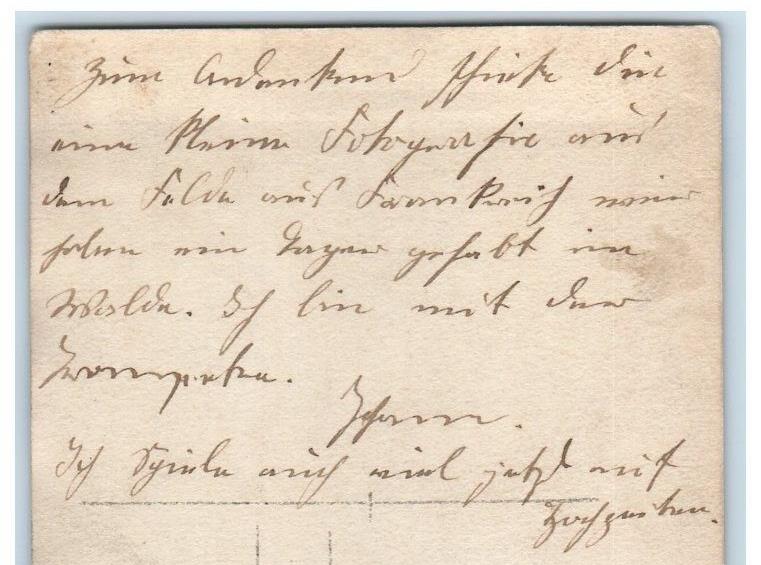 Zum Andenken schicke dir
eine kleine Fotografie aus
dem Felde aus Frankreich wir
haben ein Lager gehabt im
Walde. Ich bin mit der
Trompete.
Ich Spiele auch viel jetzt auf
Hochzeiten.